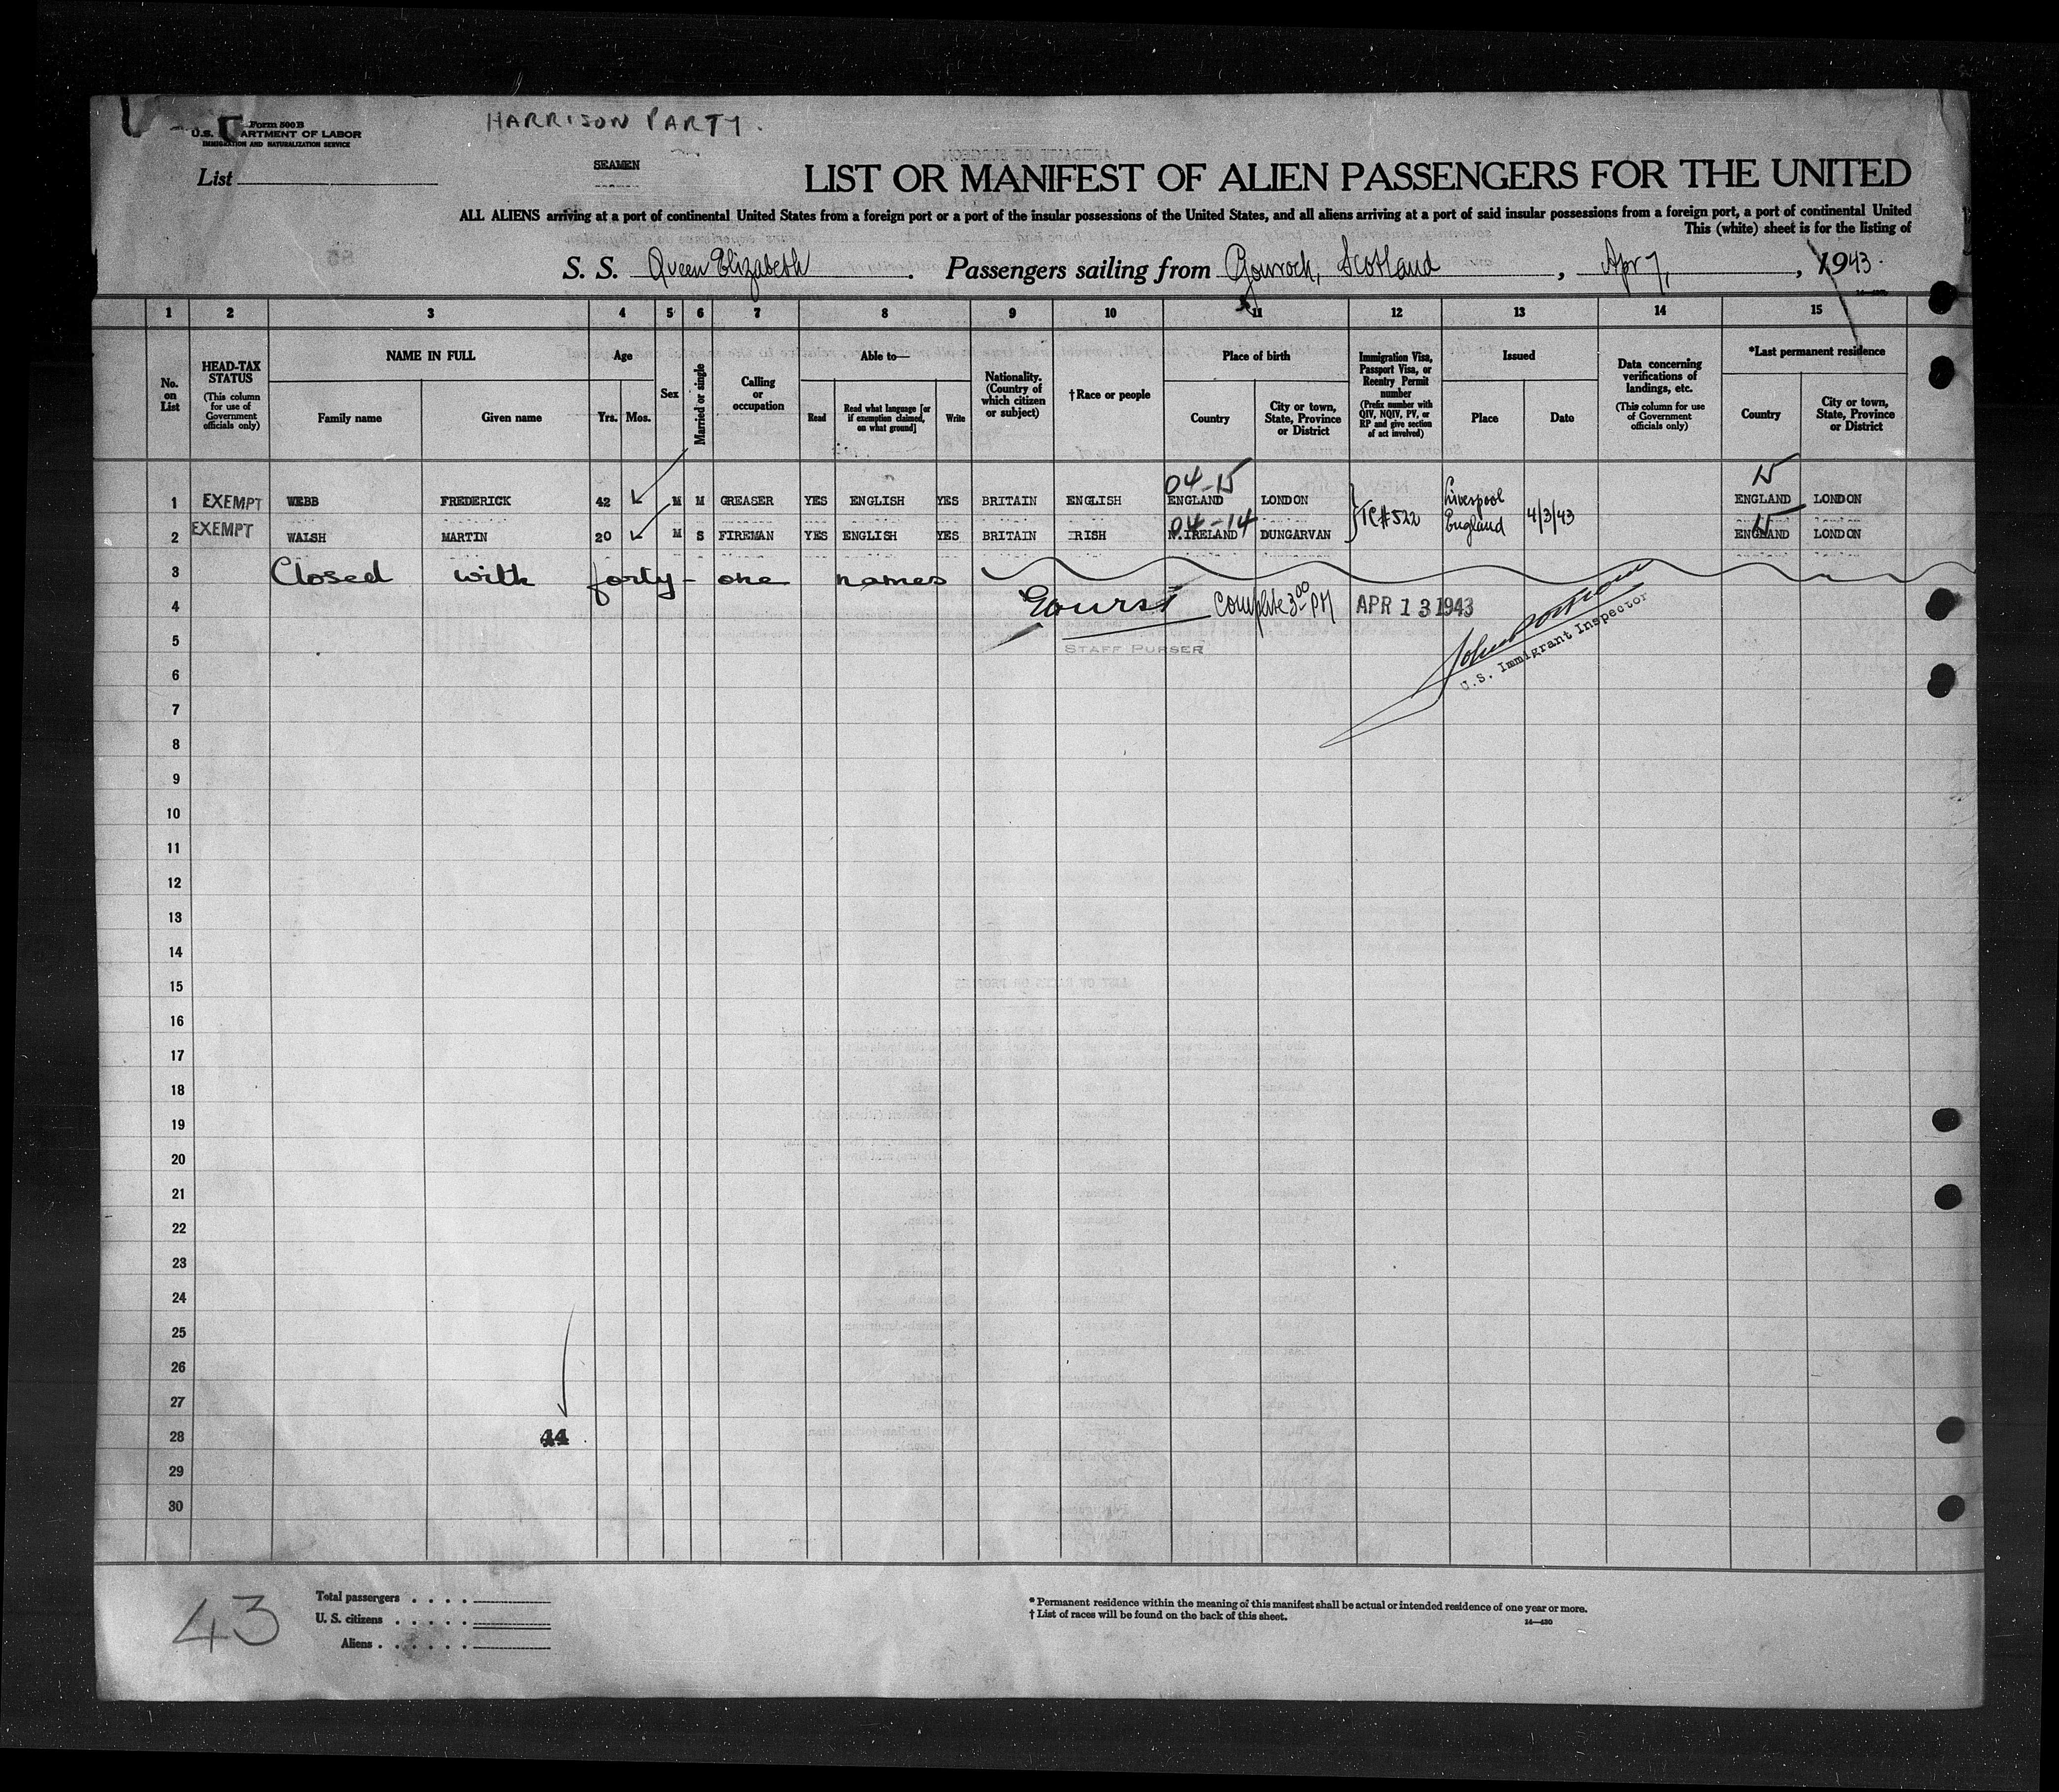 HARRISON PARTY.
Form 500B
U.S. DEPARTMENT OF LABOR
IMMIGRATION AND NATURALIZATION SERVICE
List
SEAMEN
LIST OR MANIFEST OF ALIEN PASSENGERS FOR THE UNITED
ALL ALIENS arriving at a port of continental United States from a foreign port or a port of the insular possessions of the United States, and all aliens arriving at a port of said insular possessions from a foreign port, a port of continental United
This (white) sheet is for the listing of
S. S. Queen Elizabeth. Passengers sailing from Gourock, Scotland, Apr 7, 1943.
1 2 3 4 5 6 7 8 9 10 11 12 13 14 15
No. on List
HEAD-TAX STATUS (This column for use of Government officials only)
NAME IN FULL
Family name Given name
Age
Yrs. Mos.
Sex
Married or single
Calling or occupation
Able to—
Read Read what language [or if exemption claimed, on what ground] Write
Nationality. (Country of which citizen or subject)
†Race or people
Place of birth
Country City or town, State, Province or District
Immigration Visa, Passport Visa, or Reentry Permit number (Prefix number with QIV, NQIV, PV, or RP and give section of act involved)
Issued
Place Date
Data concerning verifications of landings, etc. (This column for use of Government officials only)
*Last permanent residence
Country City or town, State, Province or District
04-15 15
1 EXEMPT WEBB FREDERICK 42 M M GREASER YES ENGLISH YES BRITAIN ENGLISH ENGLAND LONDON TC#522 Liverpool England 4/3/43 ENGLAND LONDON
04-14 15
2 EXEMPT WALSH MARTIN 20 M S FIREMAN YES ENGLISH YES BRITAIN IRISH N.IRELAND DUNGARVAN ENGLAND LONDON
3 Closed with forty-one names
4 Complete 3 00 PM APR 13 1943
5 STAFF PURSER
U.S. Immigrant Inspector
6
7
8
9
10
11
12
13
14
15
16
17
18
19
20
21
22
23
24
25
26
27
28 44
29
30
43
Total passengers . . . .
U. S. citizens . . . . .
Aliens . . . . . .
* Permanent residence within the meaning of this manifest shall be actual or intended residence of one year or more.
† List of races will be found on the back of this sheet.
14—430